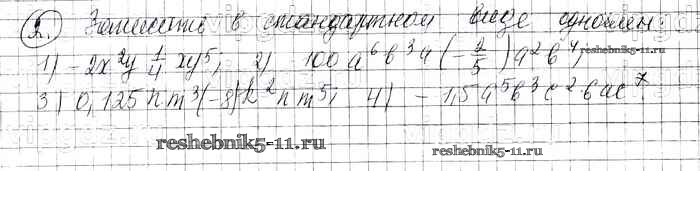 2. Запишите в стандартном виде одночлен:
1) -2x²y 1/4 xy⁵; 2) 100a⁶b³a(-2/5)a²b⁴;
3) 0,125nm³(-8)k²nm⁵; 4) -1,5a⁵b³c²bac⁷.
reshebnik5-11.ru
reshebnik5-11.ru